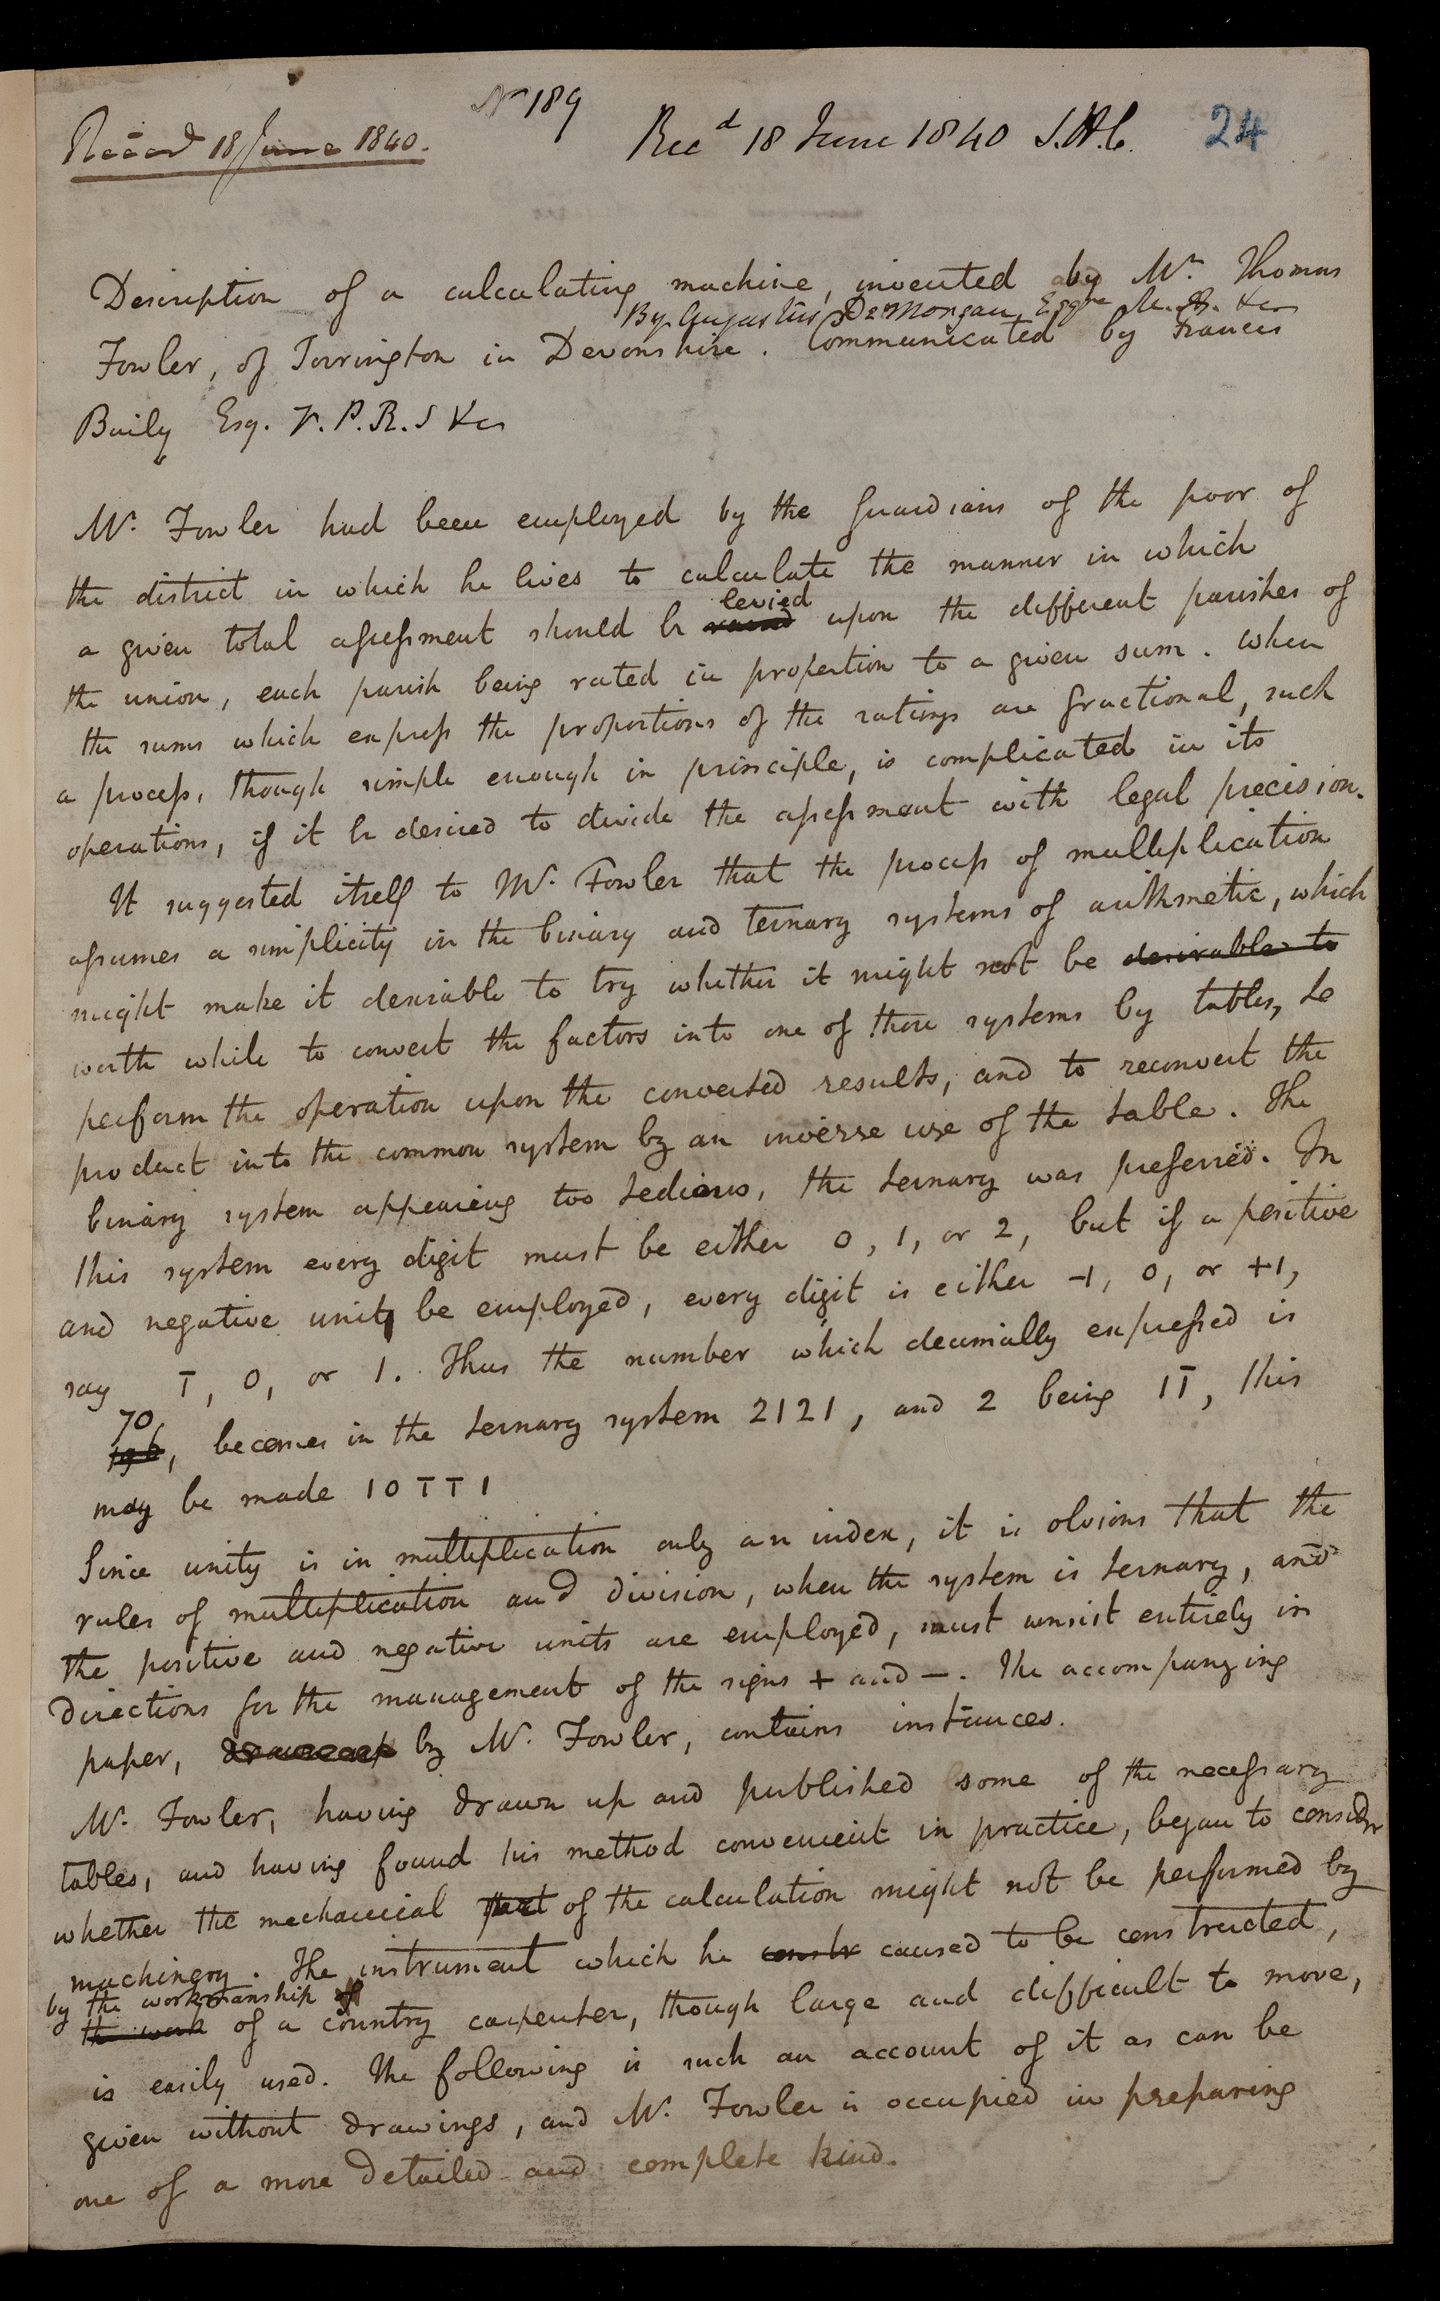 No 189
Recd 18 June 1840.
Recd 18 June 1840 S.H.C.
24
Description of a calculating machine, invented by Mr. Thomas
By Augustus De Morgan Esqre &c
Fowler, of Torrington in Devonshire. Communicated by Francis
Baily Esq. V.P.R.S &c
Mr. Fowler had been employed by the guardians of the poor of
the district in which he lives to calculate the manner in which
levied
a given total assessment should be raised upon the different parishes of
the union, each parish being rated in proportion to a given sum. When
the sums which express the proportions of the ratings are fractional, such
a process, though simple enough in principle, is complicated in its
operations, if it be desired to divide the assessment with legal precision.
It suggested itself to Mr. Fowler that the process of multiplication
assumes a simplicity in the binary and ternary systems of arithmetic, which
might make it desirable to try whether it might not be desirable to
worth while to convert the factors into one of those systems by tables, to
perform the operation upon the converted results, and to reconvert the
product into the common system by an inverse use of the table. The
binary system appearing too tedious, the ternary was preferred. In
this system every digit must be either 0, 1, or 2, but if a positive
and negative unit be employed, every digit is either -1, 0, or +1,
say T, 0, or 1. Thus the number which decimally expressed is
70
196, becomes in the ternary system 2121, and 2 being 1T, this
may be made 10TT1
Since unity is in multiplication only an index, it is obvious that the
rules of multiplication and division, when the system is ternary, and
the positive and negative units are employed, must consist entirely in
directions for the management of the signs + and -. The accompanying
paper, by Mr. Fowler, contains instances.
Mr. Fowler, having drawn up and published some of the necessary
tables, and having found his method convenient in practice, began to consider
whether the mechanical part of the calculation might not be performed by
machinery. The instrument which he constr caused to be constructed,
by the workmanship of
the work of a country carpenter, though large and difficult to move,
is easily used. The following is such an account of it as can be
given without drawings, and Mr. Fowler is occupied in preparing
one of a more detailed and complete kind.